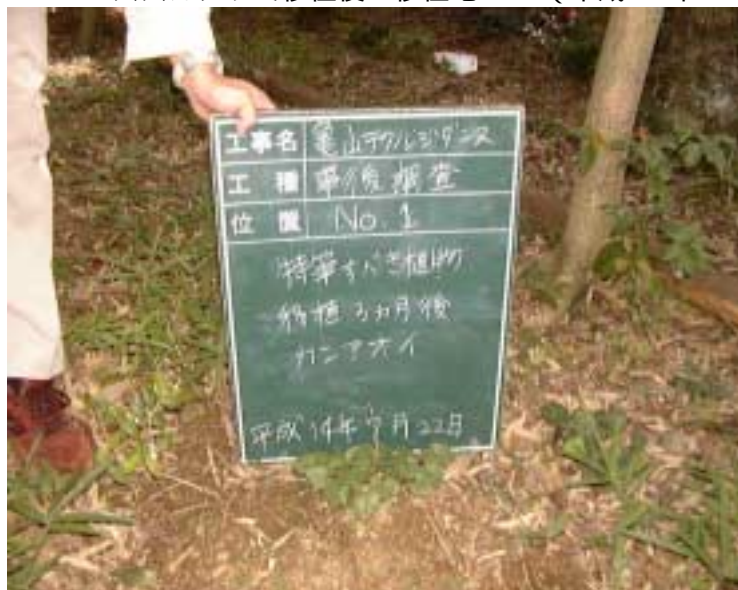 工事名 亀山テクノレジデンス
工種 事後調査
位置 No.1
特筆すべき植物
移植3ヵ月後
カンアオイ
平成14年 月22日